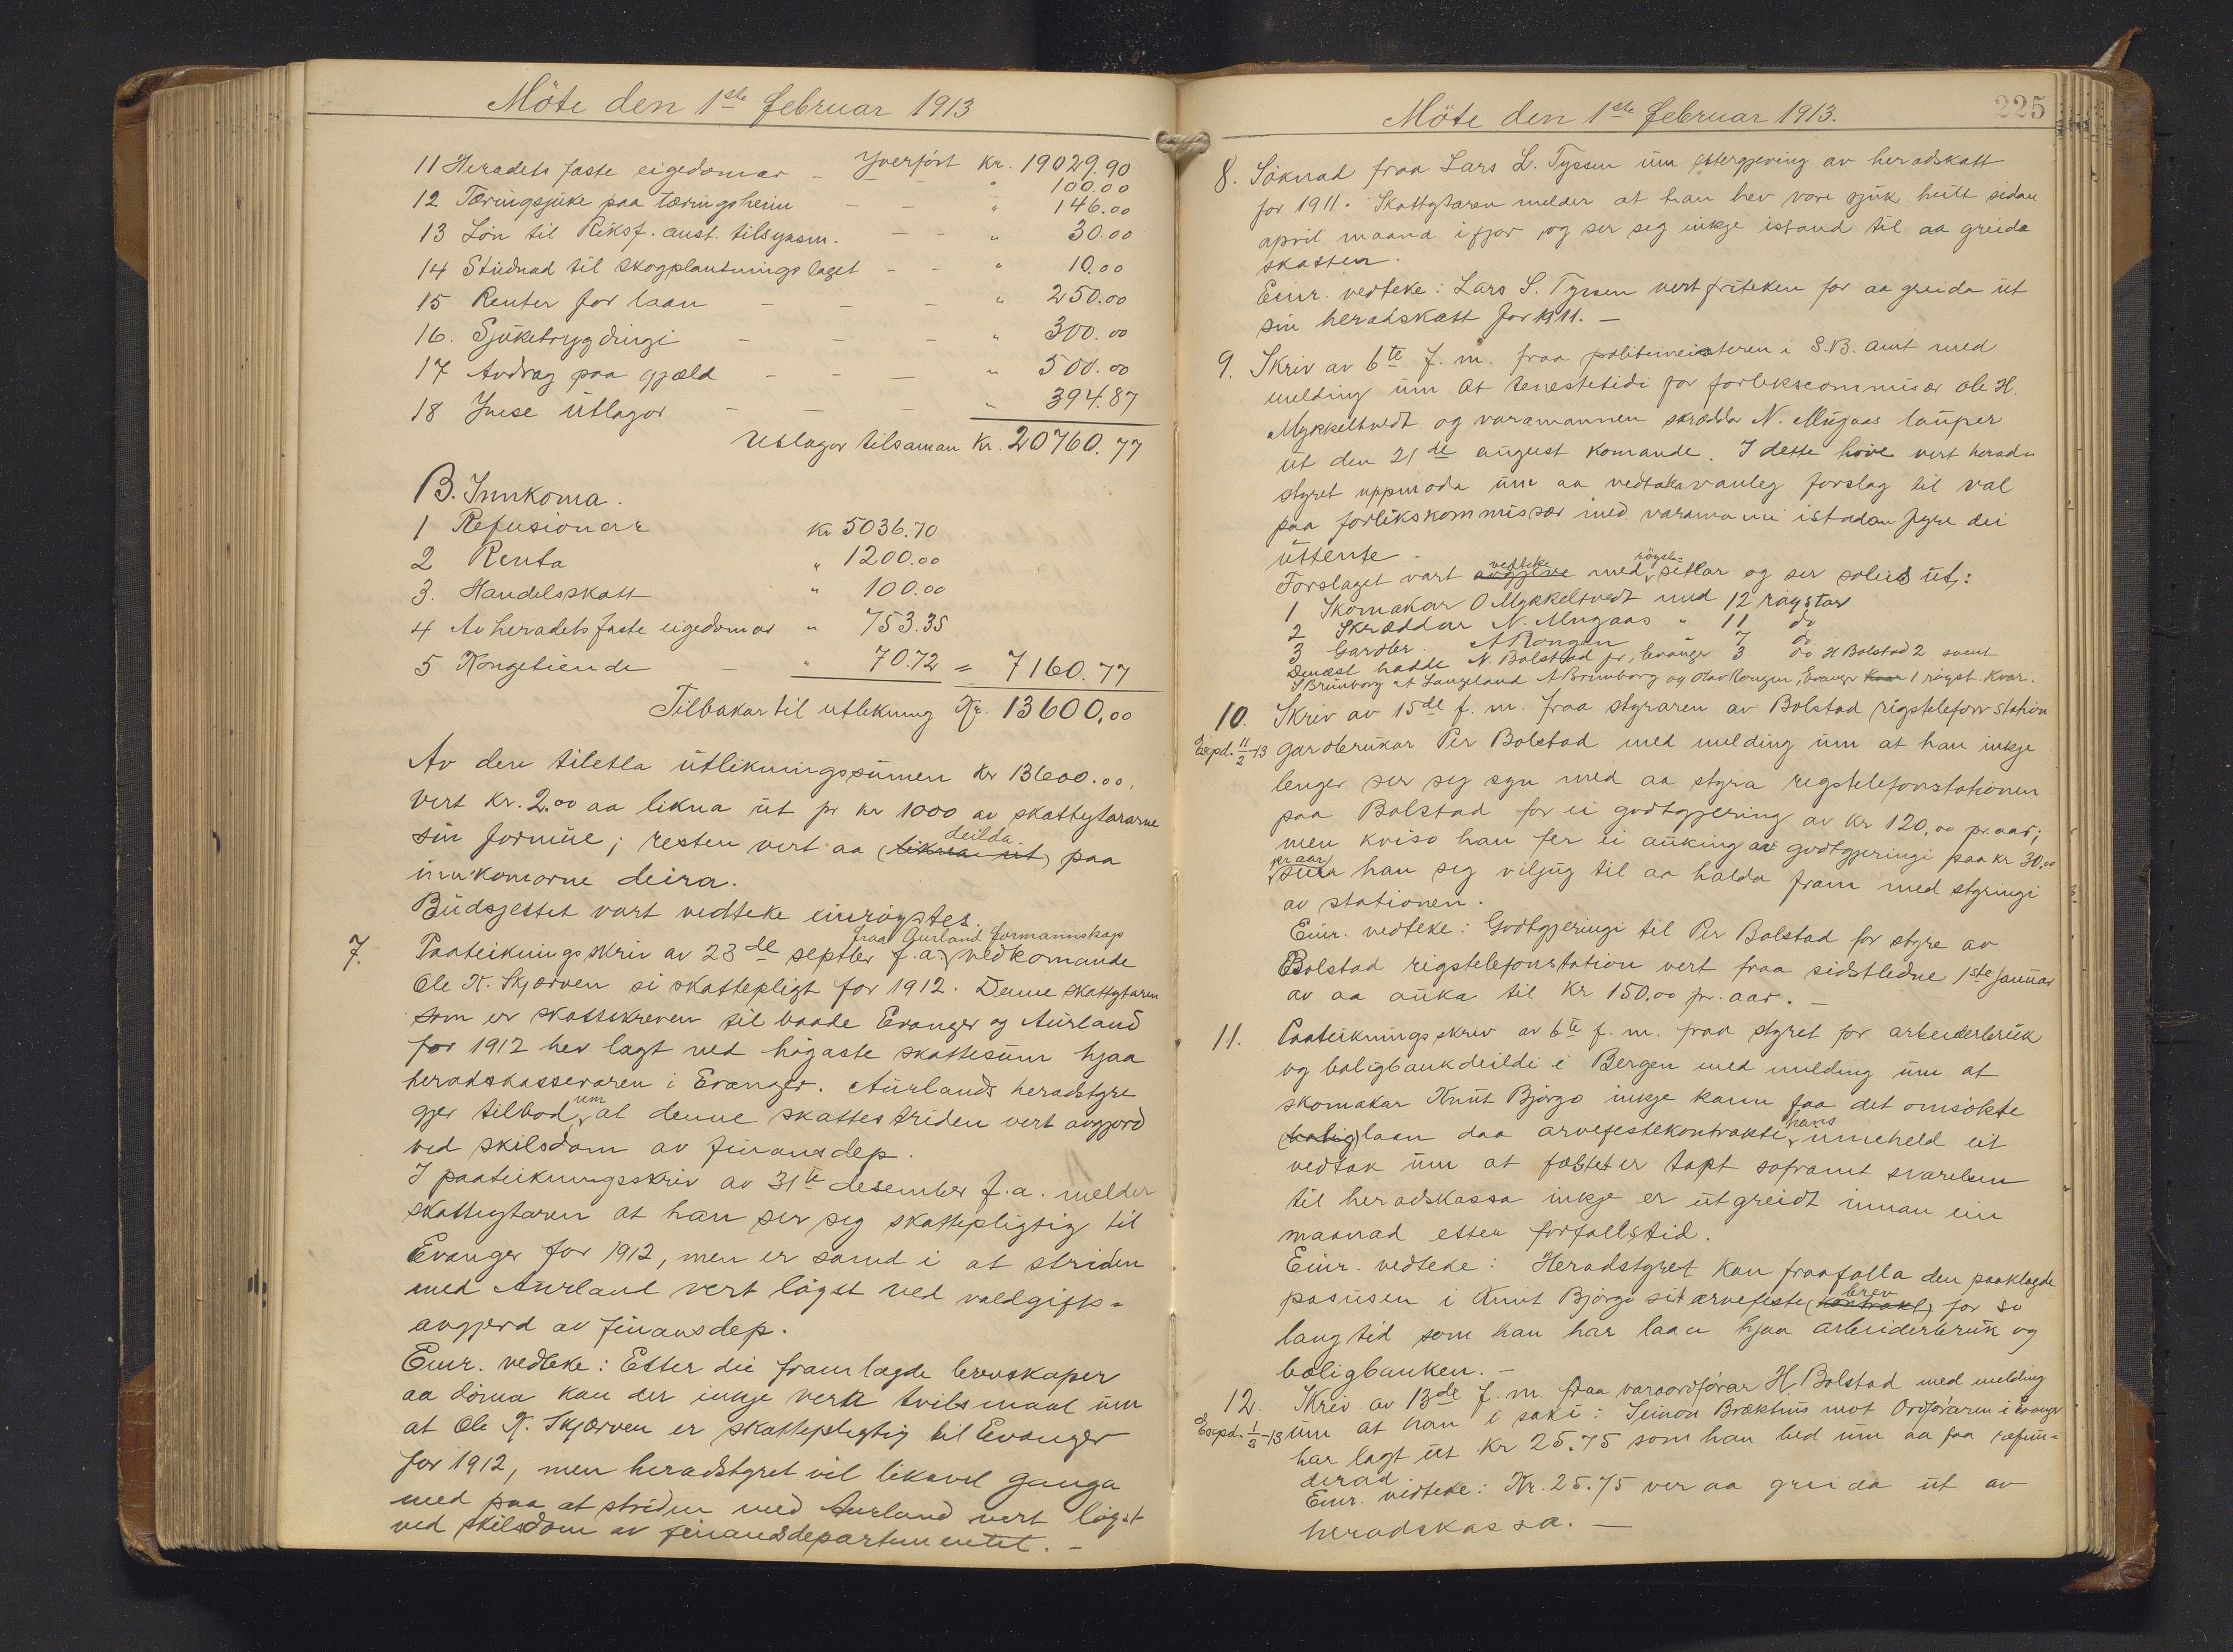 Möte den 1ste februar 1913
Yverfört Kr. 19029.90
11 Heradets faste eigedomar - " 100.00
12 Tæringsjuke paa tæringsheim - - " 146.00
13 Lön til Riksf. anst. tilsynsm. - - " 30.00
14 Studnad til skogplantningslaget - - " 10.00
15 Renter for laan - - - " 250.00
16. Sjuketrygdingi - - - " 300.00
17 Avdrag paa gjæld - - - " 500.00
18 Ymse utlagor - - - " 394.87
Utlagor tilsaman Kr. 20760.77
B. Innkoma.
1 Refusionar Kr 5036.70
2 Renta " 1200.00
3. Handelsskatt " 100.00
4 Av heradets faste eigedomar " 753.35
5 Kongetiende - " 70.72 = 7160.77
Tilbakar til utlikning Kr. 13600,00
Av den tiletla utlikningssumen Kr 13600.00,
vert Kr. 2.00 aa likna ut pr kr 1000 av skattytararne
sin formue; resten vert aa (likna ut) deilda paa
innkomorne deira.
Budsjettet vart vedteke einröystes.
7. Paateikningsskriv av 23de septbr f.a. fraa Aurland formannskap vedkomande
Ole K. Skjerven si skattepligt for 1912. Denne skattytaren
som er skattskreven til baade Evanger og Aurland
for 1912 hev lagt ned högaste skattesum hjaa
heradskasseraren i Evanger. Aurlands heradstyre
gjer tilbod um at denne skattestriden vert avgjord
ved skilsdom av finansdep.
I paateikningsskriv av 31te desember f.a. melder
skattytaren at han ser seg skattepligtig til
Evanger for 1912, men er samd i at striden
med Aurland vert lögst ved voldgifts-
avgjerd av finansdep.
Einr. vedteke: Etter dei framlagde brevskaper
aa döma kan der inkje vera tvilsmaal um
at Ole K. Skjerven er skattepligtig til Evanger
for 1912, men heradstyret vil likevel ganga
med paa at striden med Aurland vert lögst
ved skilsdom av finansdepartementet. -
Möte den 1ste februar 1913.
225
8. Söknad fraa Lars L. Tyssen um ettergjeving av heradskatt
for 1911. Skattytaren melder at han hev vore sjuk heilt sidan
april maanad ifjor og ser seg inkje istand til aa greida
skatten.
Einr. vedteke: Lars L. Tyssen vert friteken for aa greida ut
sin heradskatt for 1911. -
9. Skriv av 6te f. m. fraa politimeisteren i S.B. amt med
melding um at tenestetidi for forlikscommisær Ole H.
Mykkeltvedt og varamannen skrædder N. Mugaas lauper
ut den 21de august komande. I dette höve vert herad-
styret uppmoda um aa vedtaka vanleg forslag til val
paa forlikskommissær med varamann istadan fyre dei
uttente -
Forslaget vart avgjeve vedteke med röyste-setlar og ser soleis ut:
1 Skomakar O Mykkeltvedt med 12 röystar
2 Skræddar N. Mugaas " 11 do
3 Gardbr. A Rongen 7 do
Denæst hadde N. Bolstad pr. Evanger 3 do H Bolstad 2 samt
S Brunborg A Langeland A Brunborg og Olav Rongen, Evanger kvar 1 röyst. kvar.
10. Skriv av 15de f. m. fraa styraren av Bolstad rigstelefonstation
Expd. 11/2-13 gardbrukar Per Bolstad med melding um at han inkje
lenger ser seg syn med aa styra rigstelefonstationen
paa Bolstad for ei godtgjering av kr 120,00 pr. aar;
men kviso han fær ei auking av godtgjeringi paa kr 30,00
pr aar seier han seg viljug til aa halda fram med styringi
av stationen.
Einr. vedteke: Godtgjeringi til Per Bolstad for styre av
Bolstad rigstelefonstation vert fraa sidstledne 1ste januar
av aa auka til Kr 150,00 pr. aar. -
11. Paateikningsskriv av 6te f. m. fraa styret for arbeiderbruk
og boligbankdeildi i Bergen med melding um at
skomakar Knut Björgo inkje kann faa det omsökte
(bolig)laan daa arvefestekontrakti hans inneheld eit
vedtak um at festet er tapt soframt svarelsen
til heradskassa inkje er utgreidt innan ein
maanad etter forfallstid.
Einr. vedteke: Heradstyret kan fraafalla den paaklagde
passusen i Knut Björgo sit arvefeste(kontrakt)brev for so
lang tid som han har laan hjaa arbeiderbruk og
boligbanken. -
12. Skriv av 13de f. m. fraa varaordförar H. Bolstad med melding
Expd. 1/3-13 um at han i saki: Simon Brækhus mot Ordföraren i Evanger
har lagt ut Kr 25.75 som han bed um aa faa refun-
derad
Einr. vedteke: Kr. 25.75 ver aa greida ut av
heradskassa. -